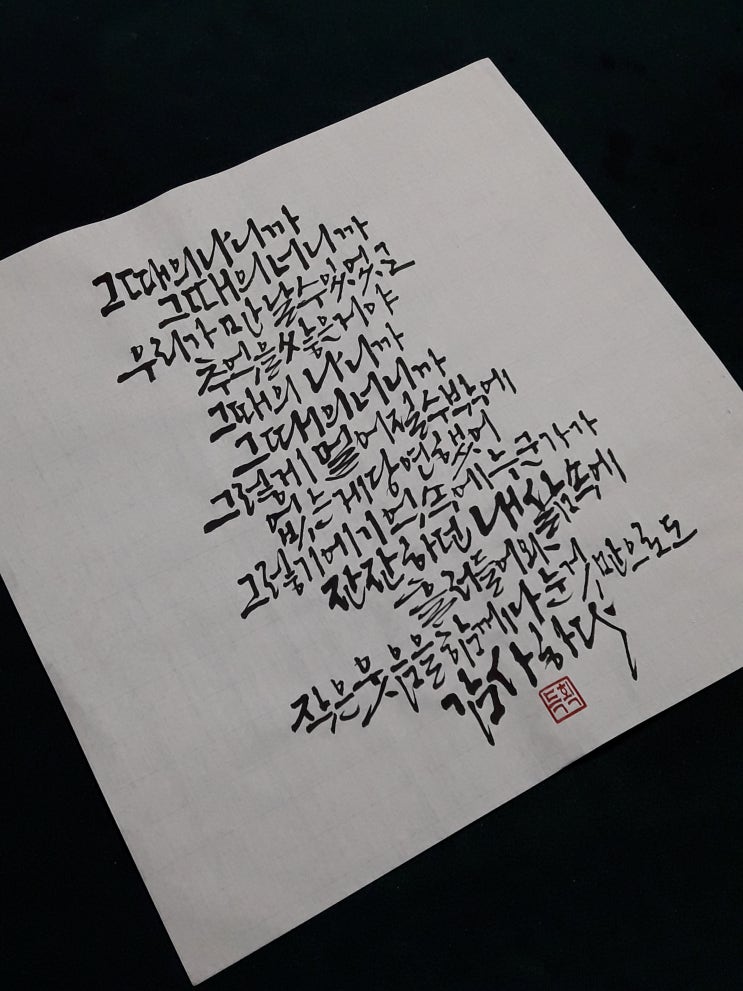 그때의 나니까
그때의 너니까
우리가 만날 수 있었고
추억을 쌓은거야
그때의 나니까
그때의 너니까
그렇게 멀어질 수밖에
없는게 당연했어
그렇기에 기억속에 누군가가
잔잔하던 내 삶속에
흘러들어와
작은 웃음을 함께 나눈것만으로도
감사하다